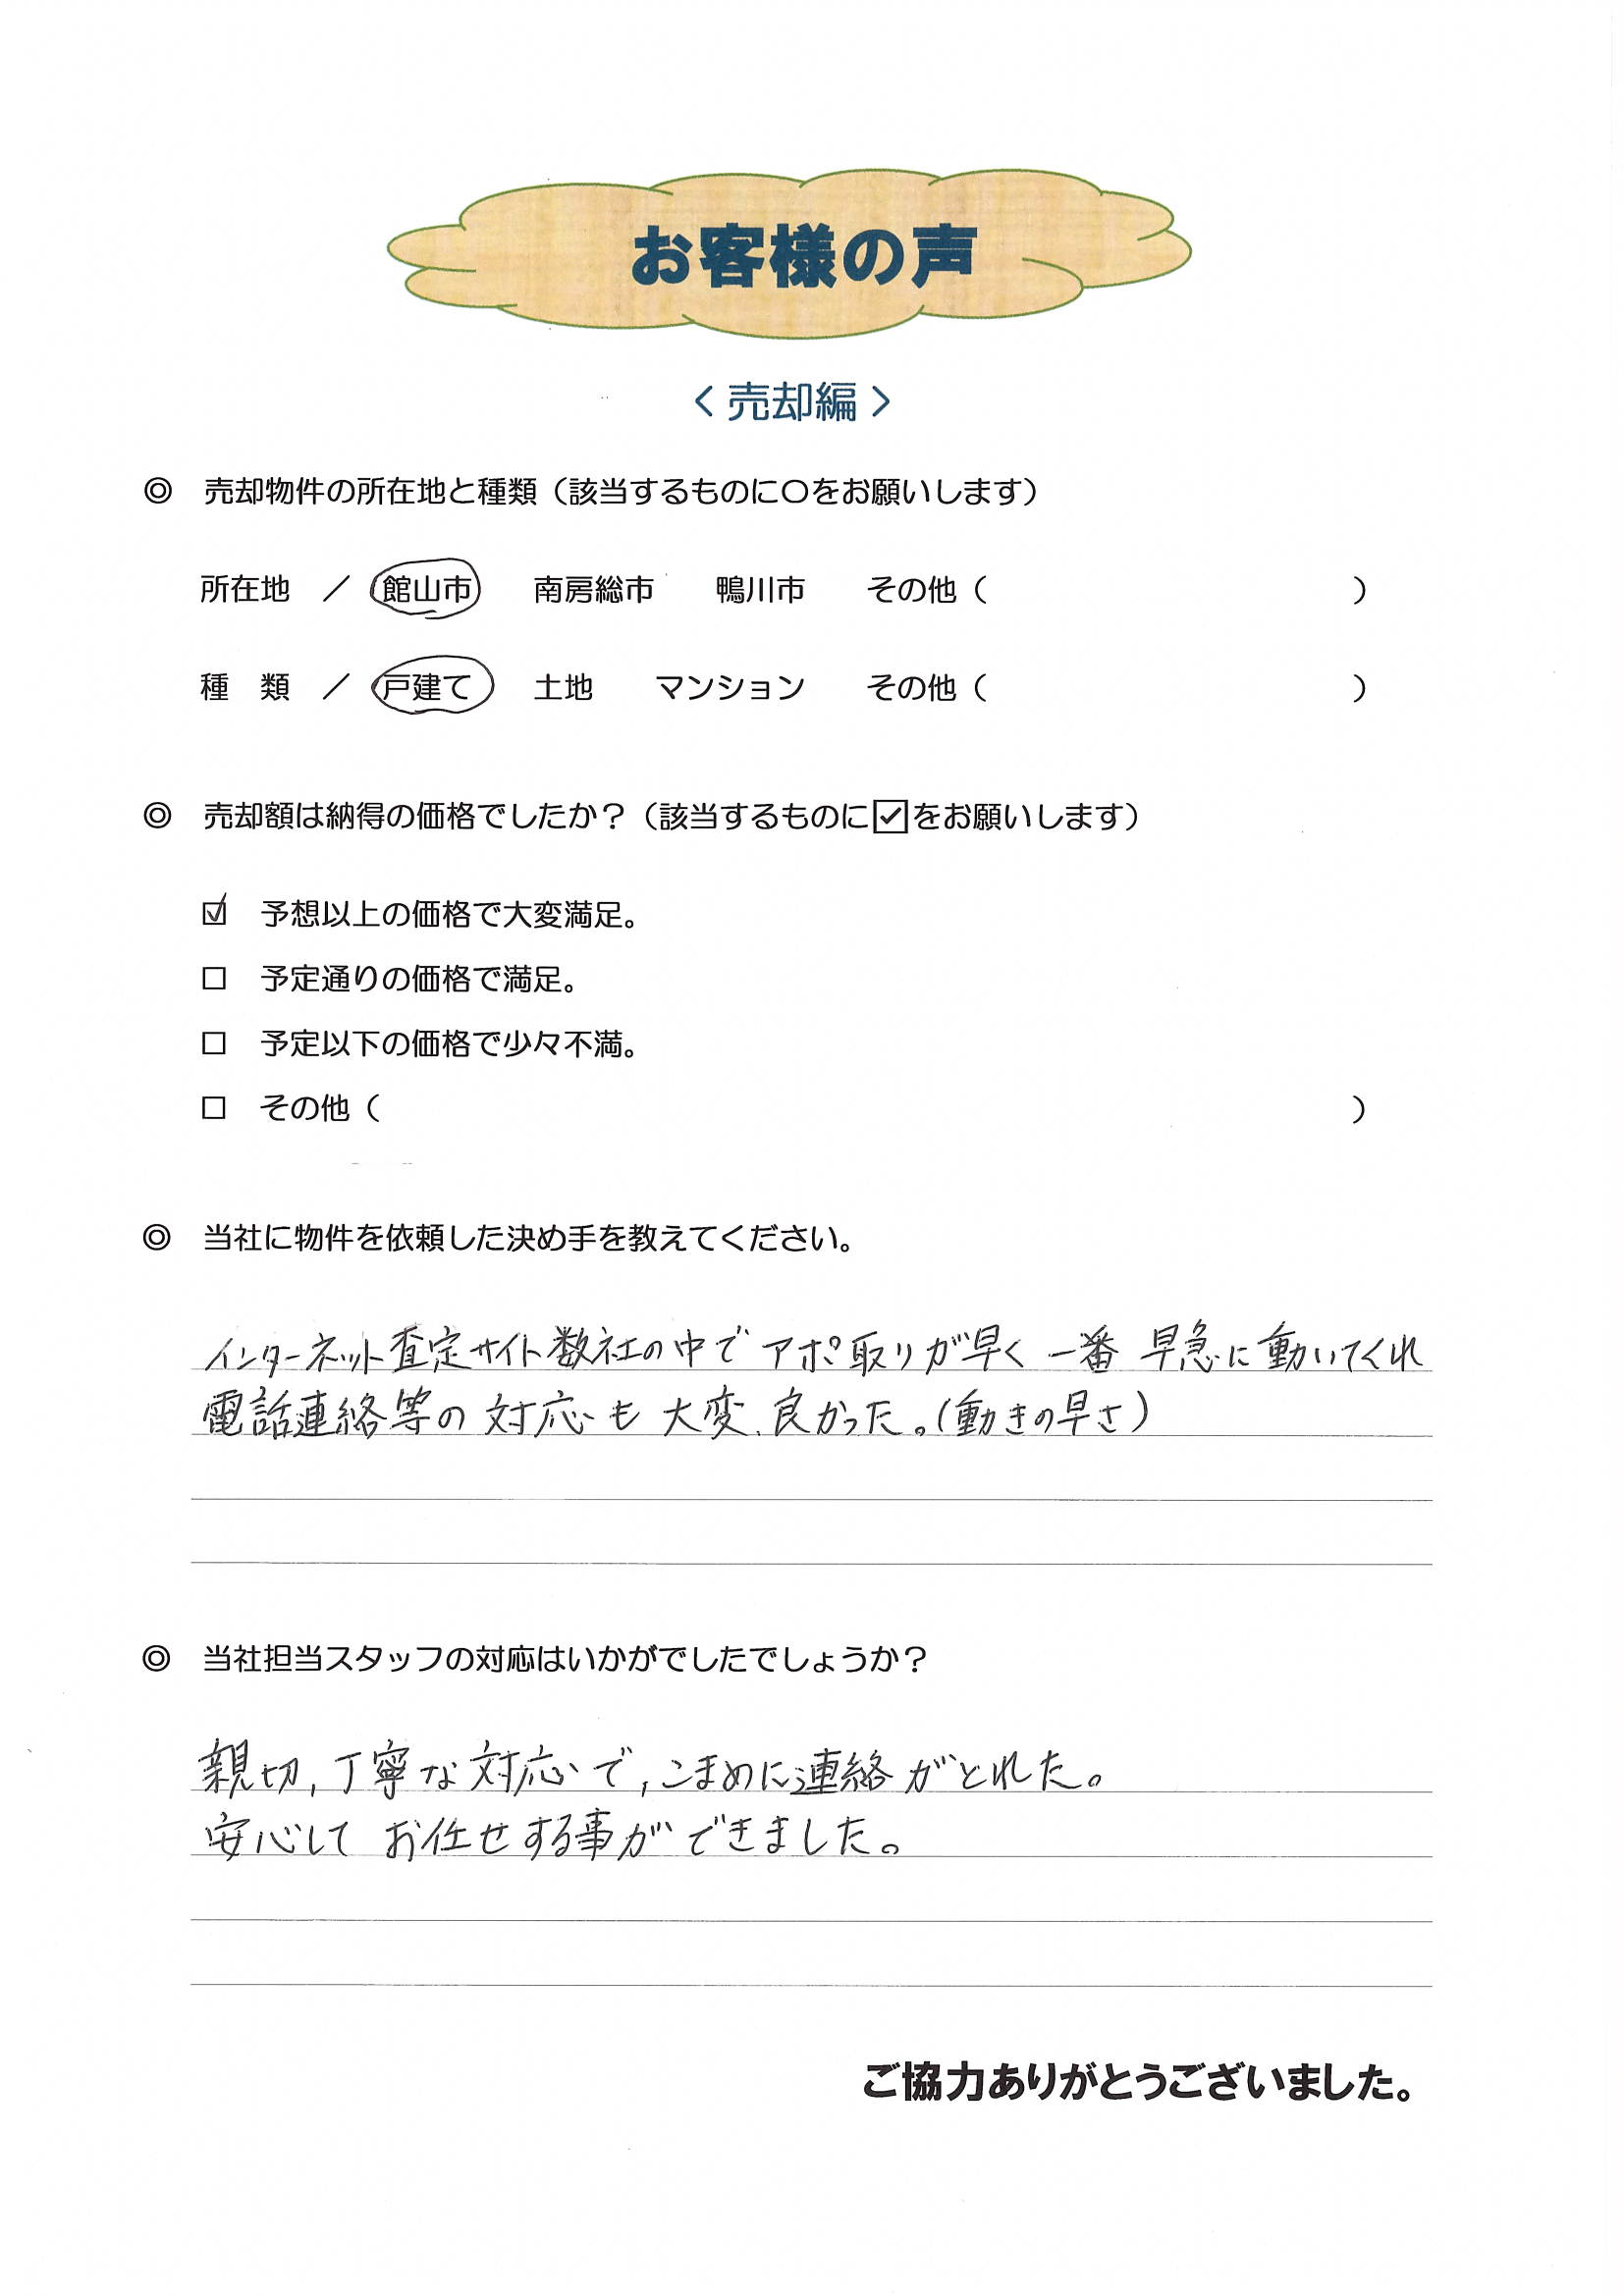 お客様の声
〈 売却編 〉
◎ 売却物件の所在地と種類（該当するものに〇をお願いします）
所在地 ／ 館山市 南房総市 鴨川市 その他（ ）
種 類 ／ 戸建て 土地 マンション その他（ ）
◎ 売却額は納得の価格でしたか？（該当するものに☑をお願いします）
☑ 予想以上の価格で大変満足。
□ 予定通りの価格で満足。
□ 予定以下の価格で少々不満。
□ その他（ ）
◎ 当社に物件を依頼した決め手を教えてください。
インターネット査定サイト数社の中で アポ取りが早く 一番 早急に動いてくれ
電話連絡等の 対応も 大変、良かった。（動きの早さ）
◎ 当社担当スタッフの対応はいかがでしたでしょうか？
親切，丁寧な対応で，こまめに連絡がとれた。
安心して お任せする事ができました。
ご協力ありがとうございました。